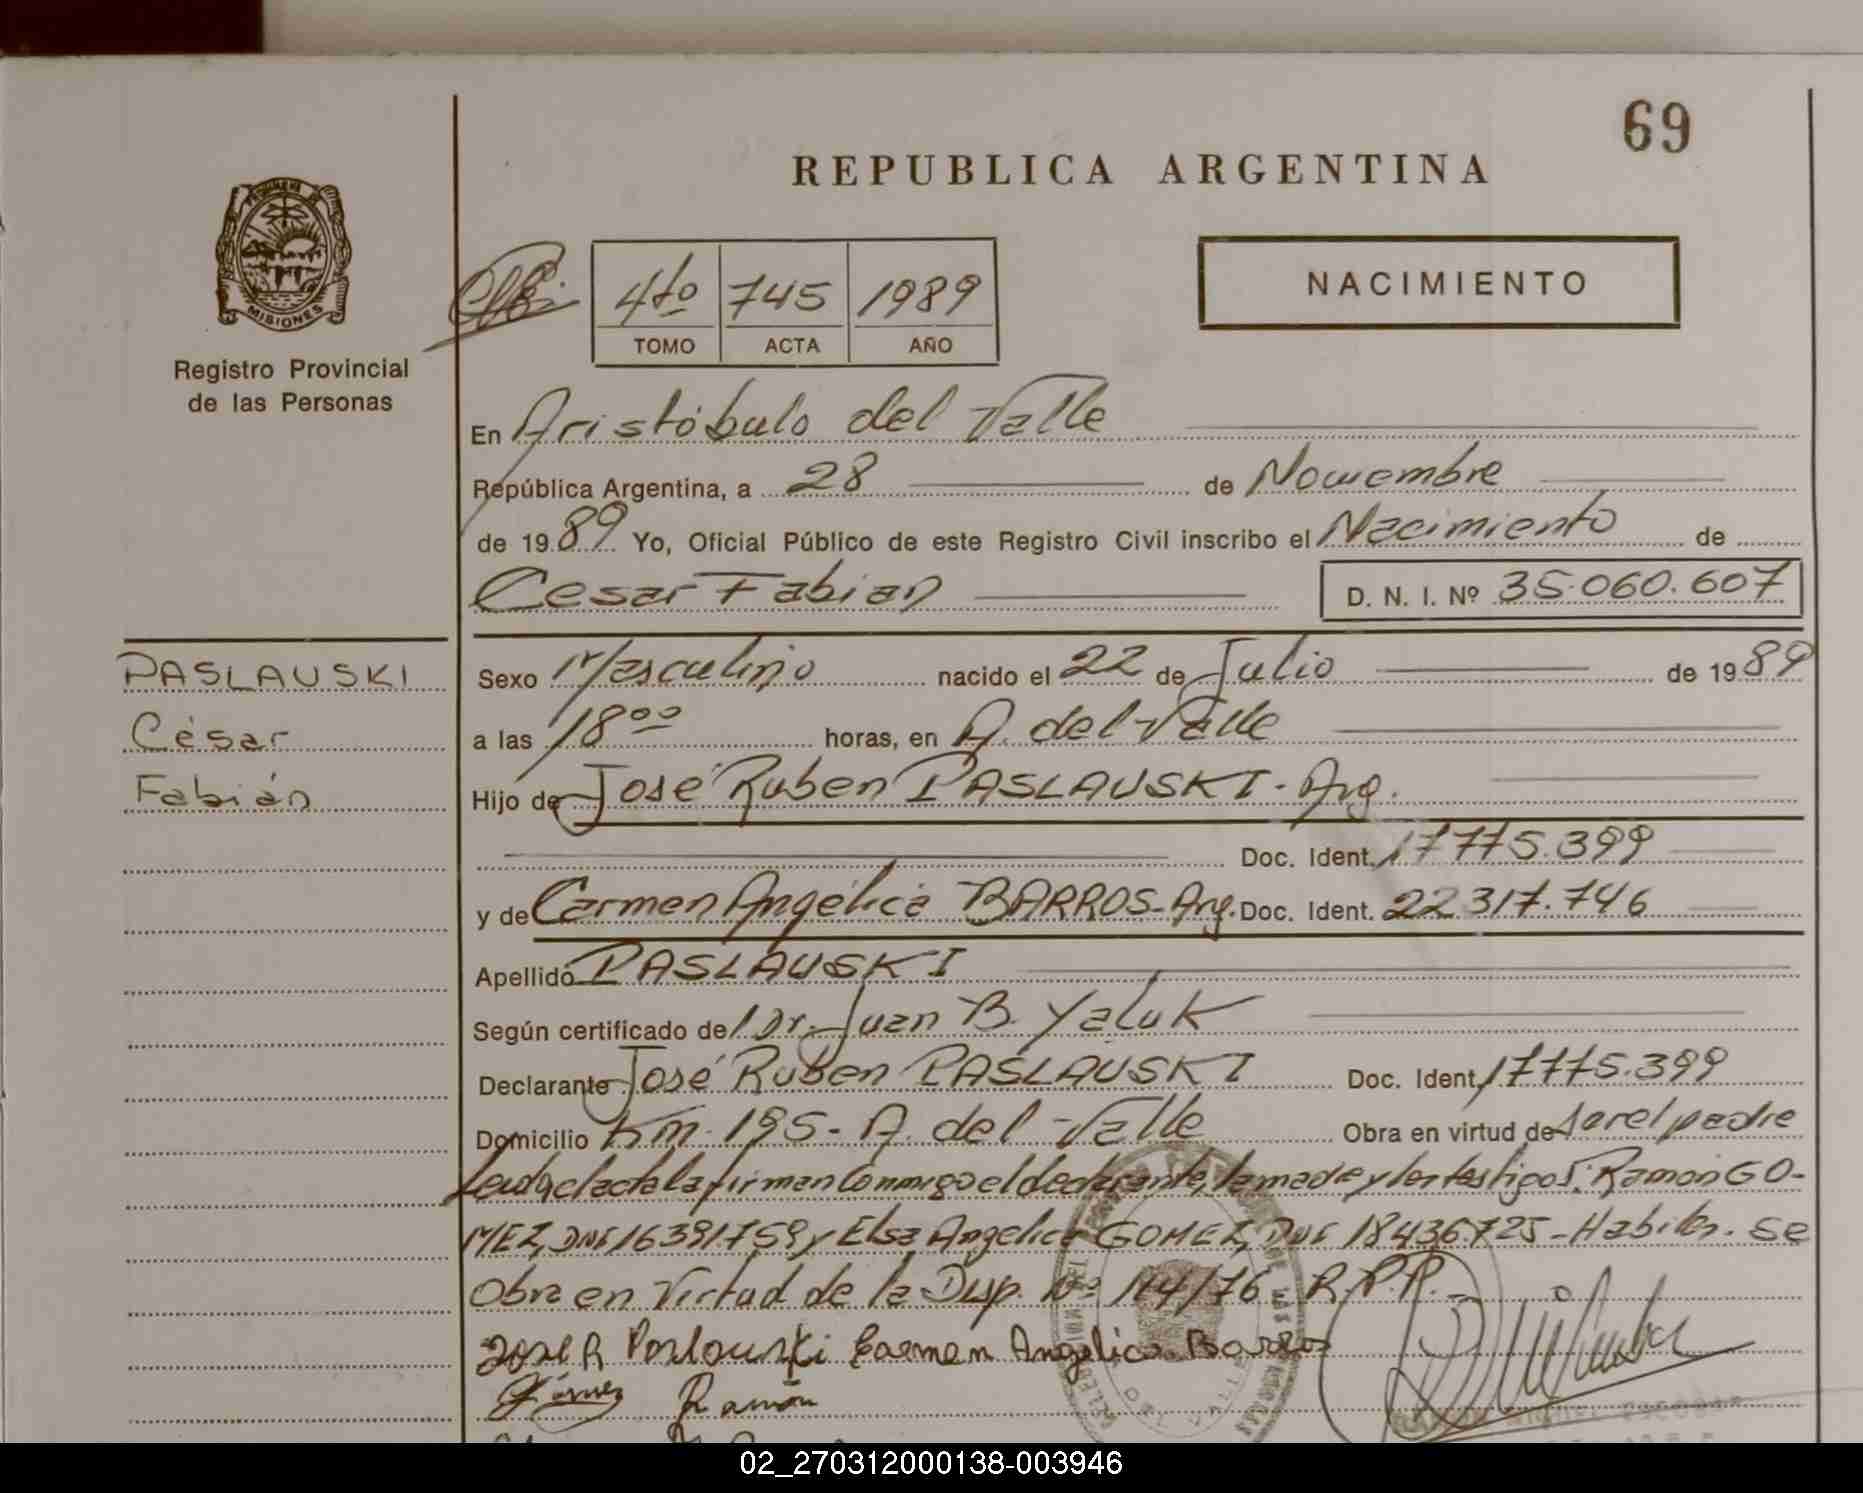 69
REPUBLICA ARGENTINA
PROVINCIA DE
MISIONES
Registro Provincial
de las Personas
4to 745 1989
TOMO ACTA AÑO
NACIMIENTO
En Aristóbulo del Valle
República Argentina, a 28 de Nouiembre
de 1989 Yo, Oficial Público de este Registro Civil inscribo el Nacimiento de
Cesar Fabian D. N. I. Nº 35.060.607
PASLAUSKI
César
Fabián
Sexo Masculino nacido el 22 de Julio de 1989
a las 18ºº horas, en A. del Valle
Hijo de José Ruben PASLAUSKI - Arg.
Doc. Ident. 17775.399
y de Carmen Angélica BARROS - Arg. Doc. Ident. 22.317.746
Apellido PASLAUSKI
Según certificado del Dr. Juan B. Yaluk
Declarante José Ruben PASLAUSKI Doc. Ident. 17775.399
Domicilio Km. 195 - A. del Valle Obra en virtud de ser el padre
Leida el acta la firman conmigo el declarante, la madre y los testigos: Ramón GO-
MEZ, DNI 16391759 y Elsa Angelica GOMEZ, DNI 18436725 - Habiles. Se
Obra en Virtud de la Disp. Nº 114/76 R.P.P.
Jose R Poslauski Carmen Angelica Barros
Gómez Ramón
DEL VALLE
02_270312000138-003946